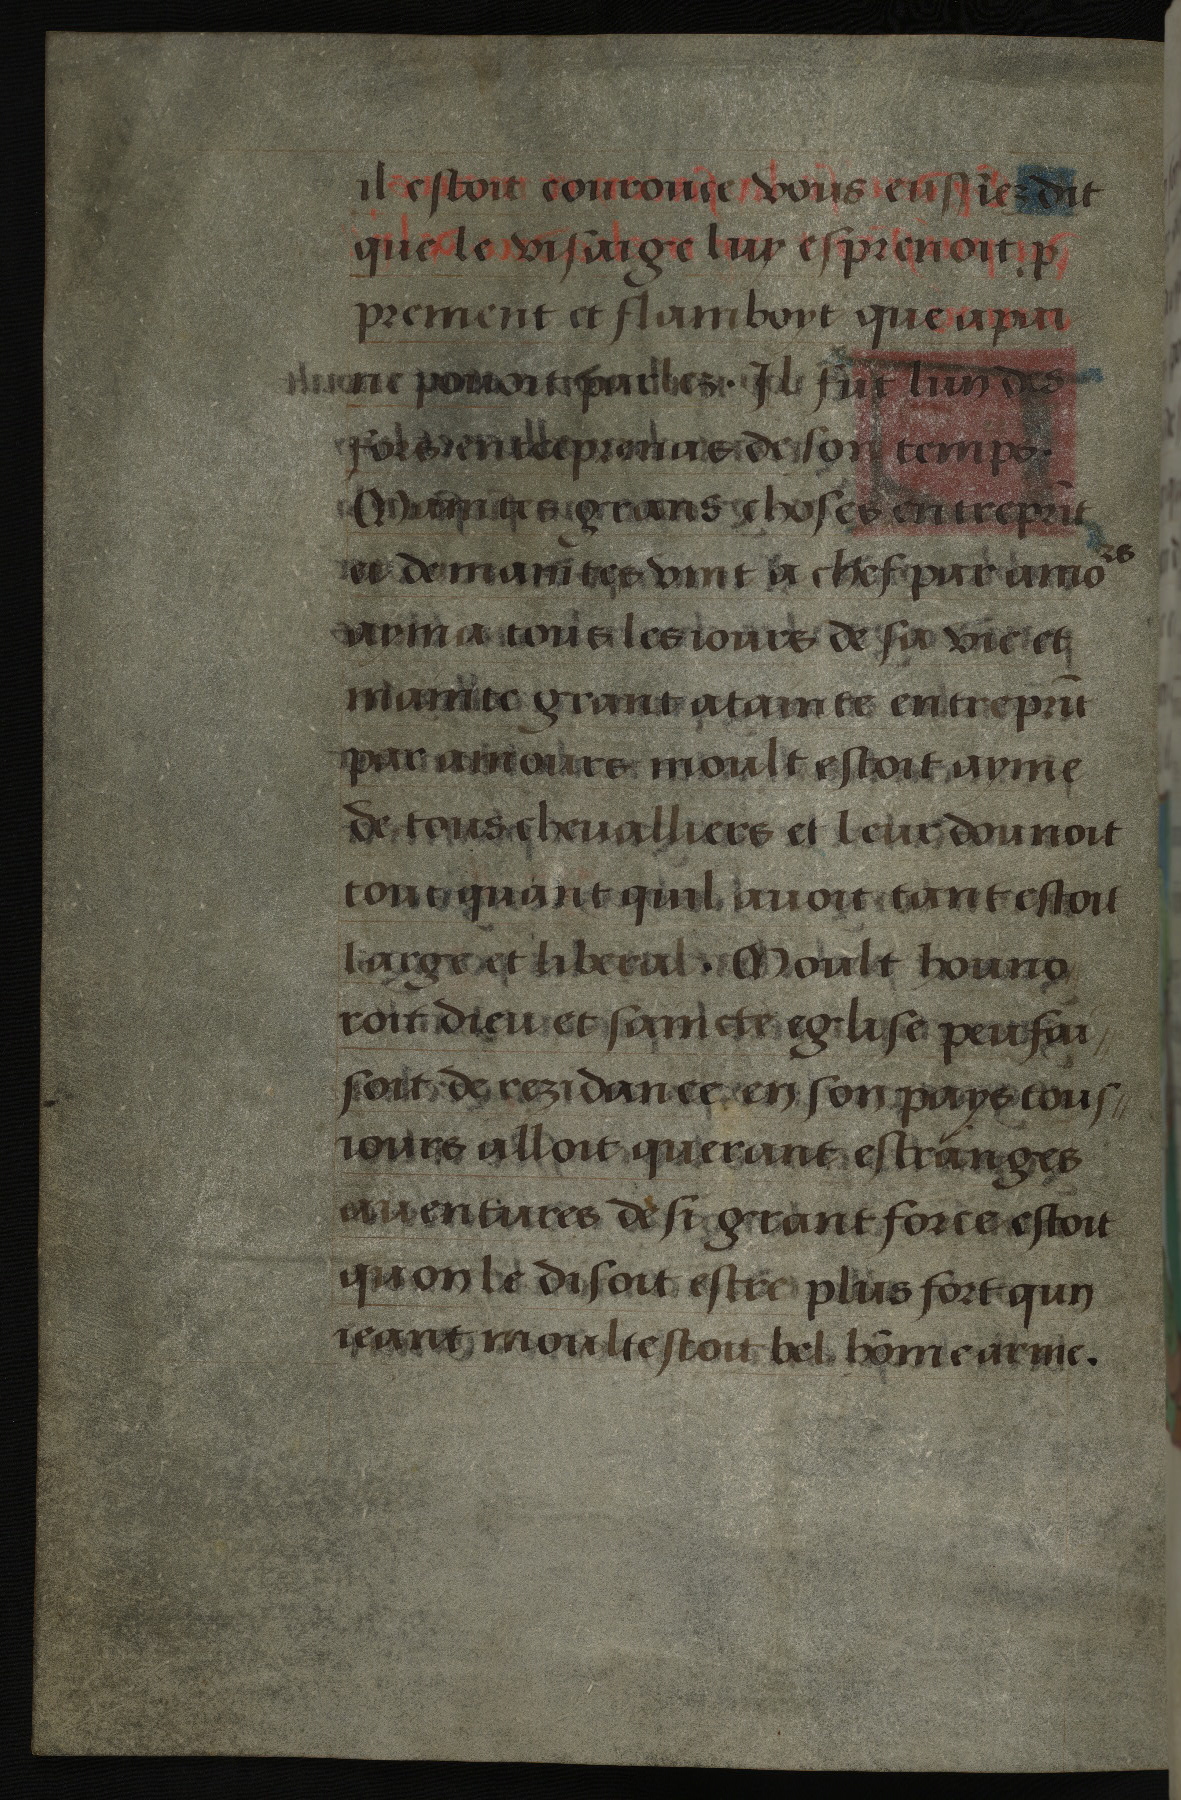 il estoit couronce vous eussiez dit
que le visaige luy esprenoit p̱
prement et flamboyt que a pai
ne pouoit parler. Il fut lun des
fors entreprenās de son temps.
Maintes grans choses entreprīt
et de maintes vint a chef par amoʳˢ
ayma tous les iours de sa vie et
mainte grant atainte entreprīt
par amours moult estoit ayme
de tous cheualliers et leur donnoit
tout quant quil auoit tant estoit
large et liberal. Moult houno
roit dieu et saincte eglise peu fai//
soit de rezidance en son pays tous//
iours alloit querant estranges
auentures de si grant force estoit
quon le disoit estre plus fort qun
ieant moult estoit bel hōme arme.